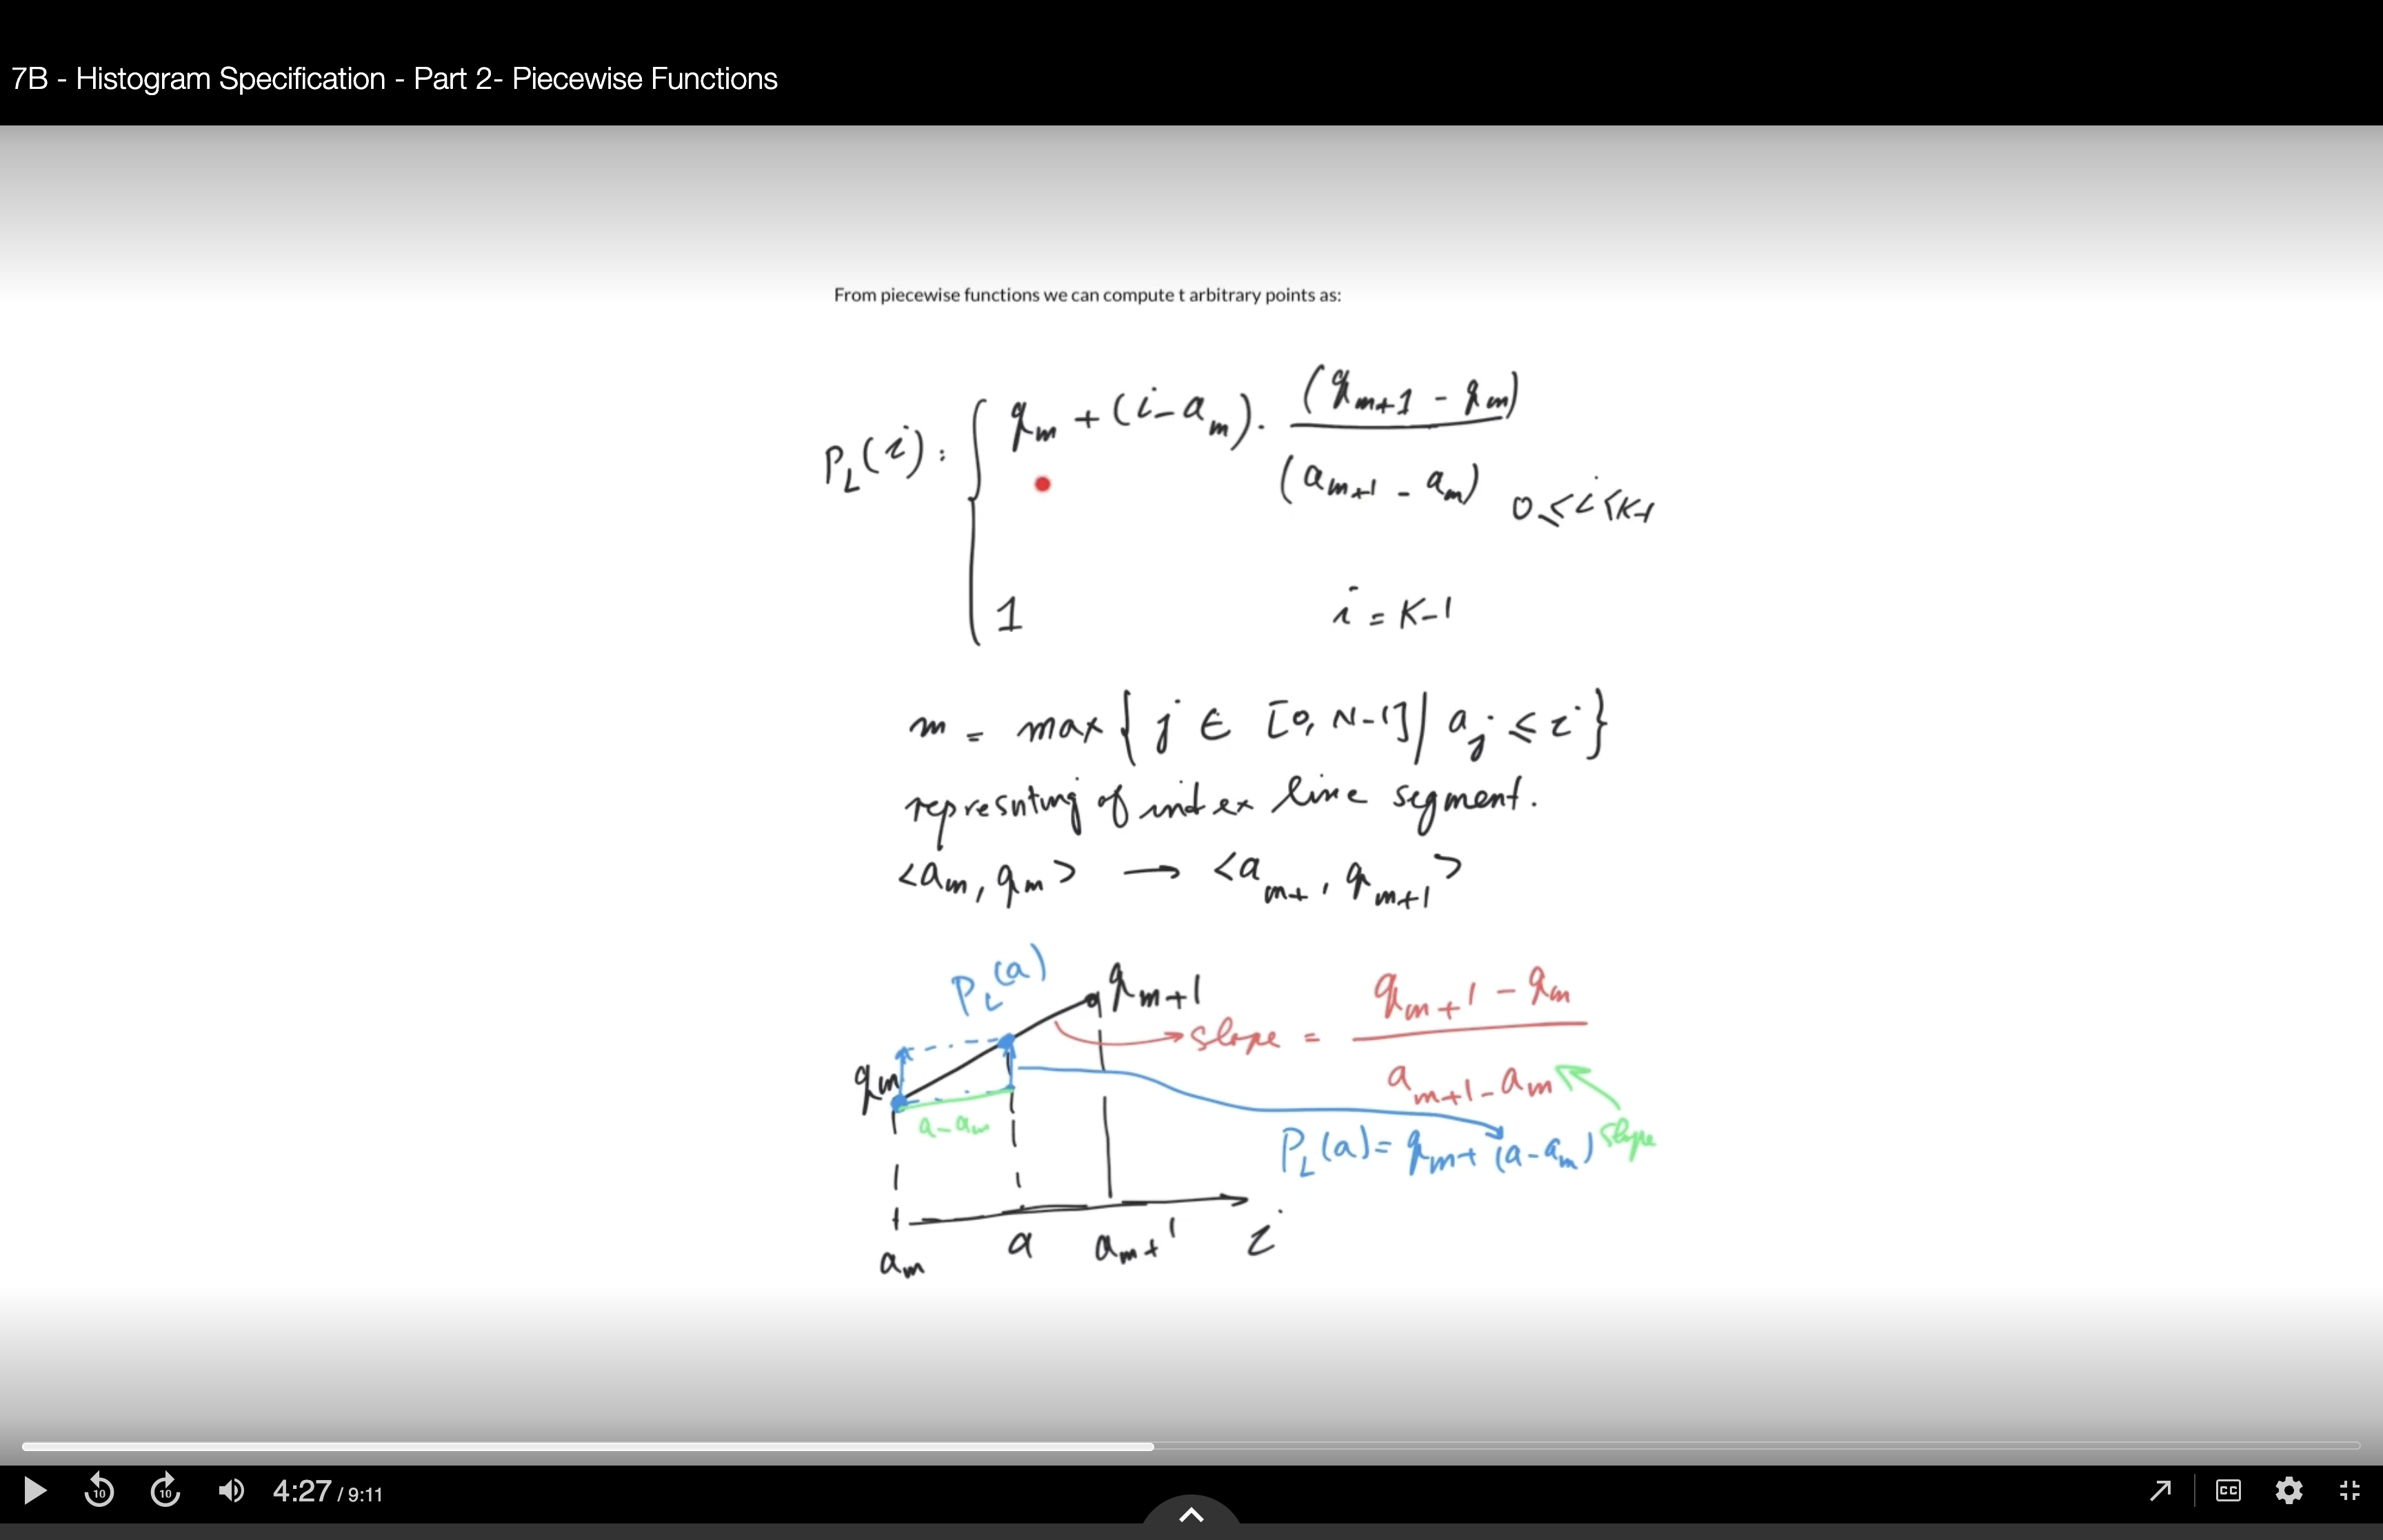 7B - Histogram Specification - Part 2- Piecewise Functions
From piecewise functions we can compute t arbitrary points as:
P_L(i) : { q_m + (i - a_m) . (q_m+1 - q_m) / (a_m+1 - a_m) 0 ≤ i < K-1
1 i = K-1
m = max { j ∈ [0, N-1] | a_j ≤ i }
represnting of index line segment.
<a_m, q_m> → <a_m+, q_m+1>
P_L(a) q_m+1
slope = (q_m+1 - q_m) / (a_m+1 - a_m)
q_m
a - a_m
P_L(a) = q_m + (a - a_m) slope
a_m a a_m+1 i
10 10 4:27 / 9:11 CC